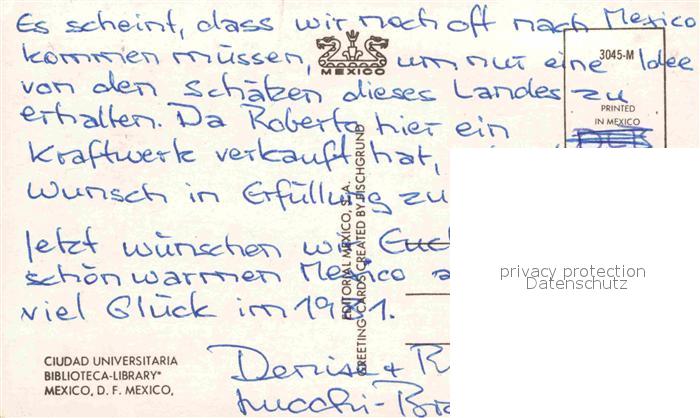 Es scheint, dass wir noch oft nach Mexico
kommen müssen, um nur eine Idee
von den Schätzen dieses Landes zu
erhalten. Da Roberto hier ein
Kraftwerk verkauft hat,
Wunsch in Erfüllung zu
Jetzt wünschen wir Euch
schön warmen Mexico
viel Glück im 1981.
Denise + R
MEXICO
3045-M
PRINTED
IN MEXICO
EDITORIAL MEXICO, S. A.
GREETING CARDS CREATED BY FISCHGRUND
CIUDAD UNIVERSITARIA
BIBLIOTECA-LIBRARY"
MEXICO, D. F. MEXICO,
privacy protection
Datenschutz